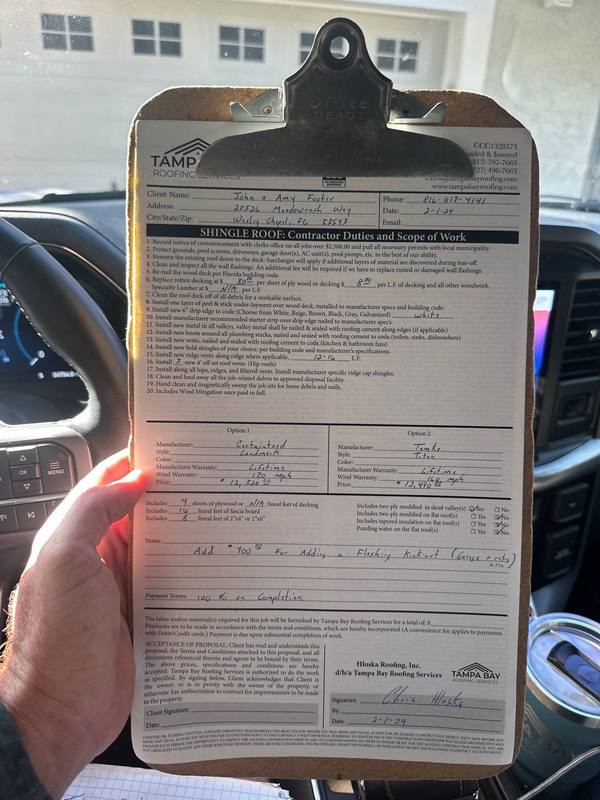 Office
DEPOT
TAMPA
ROOFING SERVICES
CCC1328373
Bonded & Insured
(813) 797-7663
(727) 496-7663
www.tampabayroofing.com
Client Name: John & Amy Foster
Phone: 816-617-4141
Address: Meadowrush Way
Date: 2-1-24
City/State/Zip: Wesley Chapel, FL 33543
Email:
SHINGLE ROOF: Contractor Duties and Scope of Work
1. Record notice of commencement with clerks office on all jobs over $2,500.00 and pull all necessary permits with local municipality.
2. Protect grounds, pool screens, driveways, garage door(s), AC unit(s), pool pumps, etc. to the best of our ability.
3. Remove the existing roof down to the deck. Surcharges will apply if additional layers of material are discovered during tear-off.
4. Clean and inspect all the wall flashings. An additional fee will be required if we have to replace rusted or damaged wall flashings.
5. Re-nail the wood deck per Florida building code.
6. Replace rotten decking at $ 80.00 per sheet of ply wood or decking $ 8.00 per L.F. of decking and all other woodwork.
Specialty Lumber at $ N/A per L.F.
7. Clean the roof deck off of all debris for a workable surface.
8. Install one layer of peel & stick under layment over wood deck, installed to manufacturer specs and building code.
9. Install new 6" drip edge to code (Choose from White, Beige, Brown, Black, Gray, Galvanized) White
10. Install manufacturer recommended starter strip over drip edge nailed to manufacturer speck.
11. Install new metal in all valleys, valley metal shall be nailed & sealed with roofing cement along edges (if applicable)
12. Install new boots around all plumbing stacks, nailed and sealed with roofing cement to code.(toilets, sinks, dishwashers)
13. Install new vents, nailed and sealed with roofing cement to code.(kitchen & bathroom fans)
14. Install new field shingles of your choice, per building code and manufacturer's specifications.
15. Install new ridge vents along ridge where applicable. 12-16 L.F.
16. Install 3 new 4' off set roof vents. (Hip roofs)
17. Install along all hips, ridges, and filtered vents. Install manufacturer specific ridge cap shingles.
18. Clean and haul away all the job-related debris to approved disposal facility.
19. Hand clean and magnetically sweep the job site for loose debris and nails.
20. Includes Wind Mitigation once paid in full.
Option 1
Manufacturer: Certainteed
Style: Landmark
Color:
Manufacturer Warranty: Lifetime
Wind Warranty: 130 mph
Price:
Option 2
Manufacturer: Tamko
Style: Titan
Color:
Manufacturer Warranty: Lifetime
Wind Warranty: 160 mph
Price:
Includes 4 sheets of plywood or N/A lineal feet of decking
Includes 16 lineal feet of fascia board
Includes 8 lineal feet of 2"x4" or 2"x6"
Includes two-ply modified in dead valley(s) Yes No
Includes two-ply modified on flat roof(s) Yes No
Includes tapered insulation on flat roof(s) Yes No
Ponding water on the flat roof(s) Yes No
Notes:
Add $400.00 For Adding a Flashing Kickout (Garage & entry area)
Payment Terms: 100 % on Completion
The labor and/or material(s) required for this job will be furnished by Tampa Bay Roofing Services for a total of: $
Payments are to be made in accordance with the terms and conditions, which are hereby incorporated (A convenience fee applies to payments
with Debit/Credit cards.) Payment is due upon substantial completion of work.
ACCEPTANCE OF PROPOSAL: Client has read and understands this
proposal, the Terms and Conditions attached to this proposal, and all
documents referenced therein and agrees to be bound by their terms.
The above prices, specifications and conditions are hereby
accepted. Tampa Bay Roofing Services is authorized to do the work
as specified. By signing below, Client acknowledges that Client is
the owner, or is in privity with the owner of the property, or
otherwise has authorization to contract for improvements to be made
to the property.
Client Signature:
Date:
Hloska Roofing, Inc.
d/b/a Tampa Bay Roofing Services
TAMPA BAY
ROOFING SERVICES
Signature: Chris Hloska
By:
Date: 2-1-24
MENU